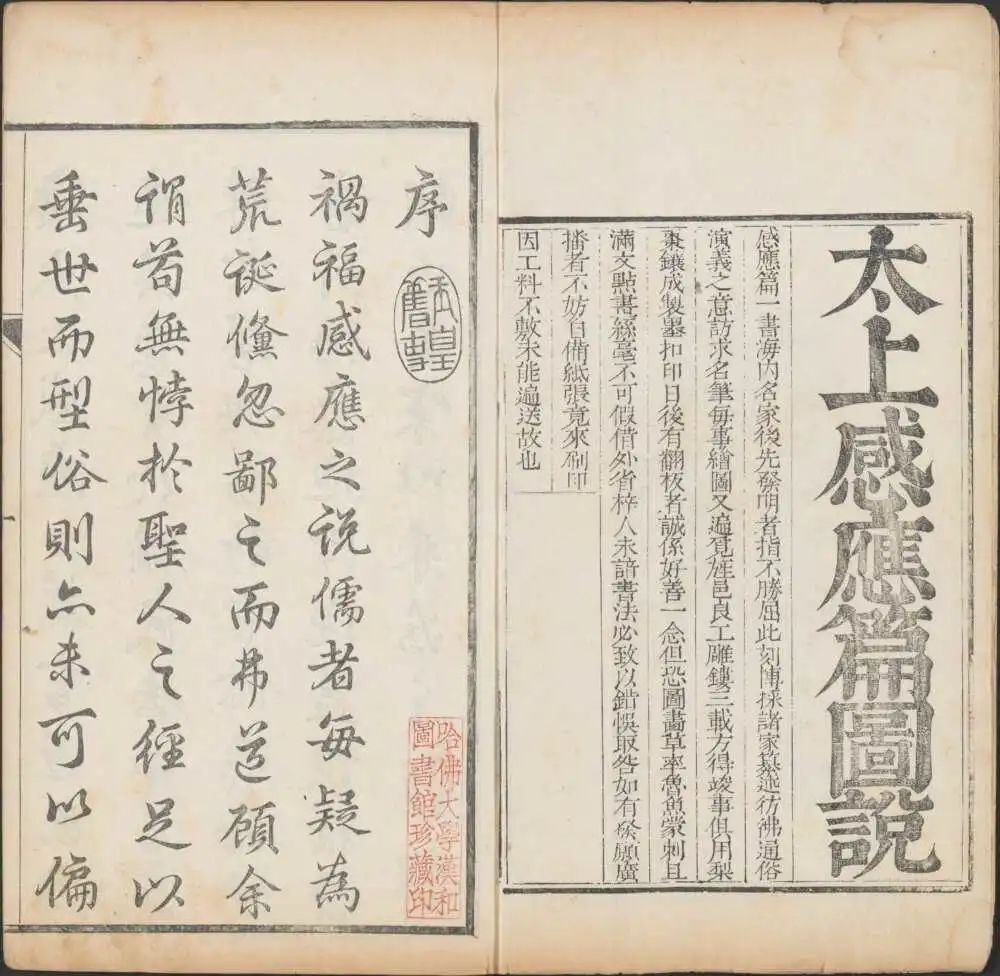 太上感應篇圖說
感應篇一書海內名家後先發明者指不勝屈此刻博採諸家纂述彷彿通俗
演義之意訪求名筆每事繪圖又遍覓旌邑良工雕鏤三載方得竣事俱用梨
棗鑲成製墨扣印日後有翻板者誠係好善一念但恐圖畫草率魯魚蒙刺且
滿文點畫絲毫不可假借外省梓人未諳書法必致以錯悞取咎如有發願廣
播者不妨自備紙張竟來刷印
因工料不敷未能遍送故也
序
禍福感應之說儒者每疑為
荒誕儻忽鄙之而弗道顧余
謂苟無悖於聖人之經足以
垂世而型俗則亦未可以偏
哈佛大學漢和
圖書館珍藏印